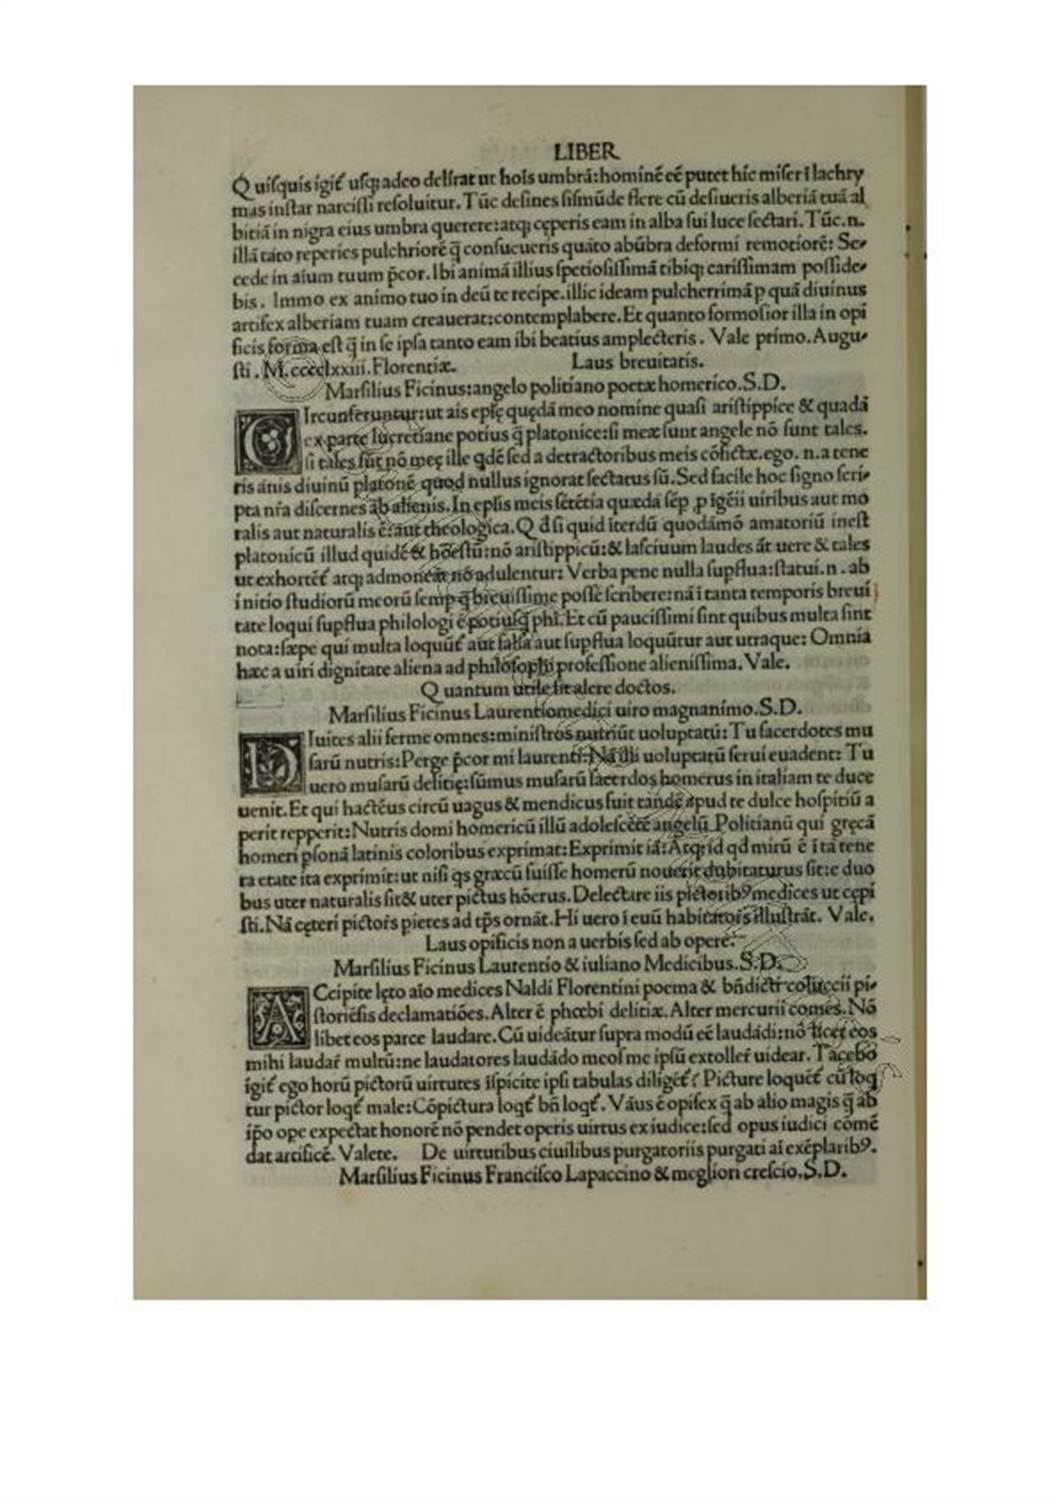 LIBER
Quisquis igit᷑ usq; adeo delirat ut hoīs umbrā: hominē eē putet hic miser ī lachry
mas instar narcissi resoluitur. Tūc desines sismūde flere cū desiueris alberiā tuā al
bitiā in nigra eius umbra querere: atq; cęperis eam in alba sui luce sectari. Tūc.n.
illā tāto reperies pulchriorē q̄ consueueris quāto abūbra deformi remotiorē: Se-
cede in aīum tuum p̄cor. Ibi animā illius spetiosissimā tibiq; carissimam posside-
bis. Immo ex animo tuo in deū te recipe. illic ideam pulcherrimā p quā diuinus
artifex alberiam tuam creauerat: contemplabere. Et quanto formosior illa in opi
ficis forma est q̄ in se ipsa tanto eam ibi beatius amplecteris. Vale primo. Augu-
sti. M.cccclxxiii. Florentiæ. Laus breuitatis.
Marsilius Ficinus: angelo politiano poetæ homerico. S.D.
CIrcunferuntur: ut ais epłę quędā meo nomine quasi aristippice & quadā
ex parte lucretiane potius q̄ platonice: si meæ sunt angele nō sunt tales.
si tales sūt nō meę ille qdē sed a detractoribus meis cōfictæ. ego .n. a tene
ris ānis diuinū platonē quod nullus ignorat sectatus sū. Sed facile hoc signo scri-
pta nr̄a discernes ab alienis. In epłis meis sētētia quæda sēp ꝓ īgēii uiribus aut mo
ralis aut naturalis ē: aut theologica. Qd si quid īterdū quodāmō amatoriū inest
platonicū illud quidē & hoēstū: nō aristippicū: & lasciuum laudes āt uere & tales
ut exhortēt᷑ atq; admoneāt nō adulentur: Verba pene nulla supflua: statui .n. ab
initio studiorū meorū semp q̄ breuissime possē scribere: nā ī tanta temporis breui
tate loqui supflua philologi ē potiusq̄ phī. Et cū paucissimi sint quibus multa sint
nota: sæpe qui multa loquūt᷑ aut falsa aut supflua loquūtur aut utraque: Omnia
hæc a uiri dignitate aliena ad philosophi professione alienissima. Vale.
Quantum utile sit alere doctos.
Marsilius Ficinus Laurentiomedici uiro magnanimo. S.D.
DIuites alii ferme omnes: ministros nutriūt uoluptatū: Tu sacerdotes mu
sarū nutris: Perge p̄cor mi laurenti: Nā illi uoluptatū serui euadent: Tu
uero musarū delitię: sūmus musarū sacerdos homerus in italiam te duce
uenit. Et qui hactēus circū uagus & mendicus fuit tandē apud te dulce hospitiū a
perit repperit: Nutris domi homericū illū adolescētē angelū Politianū qui gręcā
homeri psonā latinis coloribus exprimat: Exprimit iā: Atq; id qd mirū ē ī tā tene
ra etate ita exprimit: ut nisi qs græcū fuisse homerū nouerit dubitaturus sit: e duo
bus uter naturalis sit & uter pictus hōerus. Delectare iis pictoribꝰ medices ut cępi
sti. Nā cęteri pictor̄s pietes ad tp̄s ornāt. Hi uero ī euū habitator̄s illustrāt. Vale.
Laus opificis non a uerbis sed ab opere.
Marsilius Ficinus Laurentio & iuliano Medicibus. S.D.
ACcipite lęto aīo medices Naldi Florentini poema & bn̄dicti coluccii pi-
storiēsis declamatiōes. Alter ē phœbi delitiæ. Alter mercurii comes. Nō
libet eos parce laudare. Cū uideātur supra modū eē laudādi: nō licet eos
mihi laudar̄ multū: ne laudatores laudādo meos me ipsū extoller̄ uidear. Tacebo
igit᷑ ego horū pictorū uirtutes īspicite ipsi tabulas diligēt᷑? Picture loquēt᷑ cū loq
tur pictor loqt᷑ male: Cōpictura loqt᷑ bn̄ loqt᷑. Vāus ē opifex q̄ ab alio magis q̄ ab
ip̄o ope expectat honorē nō pendet operis uirtus ex iudice: sed opus iudici cōmē
dat artificē. Valete. De uirtutibus ciuilibus purgatoriis purgati aī exēplaribꝰ.
Marsilius Ficinus Francisco Lapaccino & megliori crescio. S.D.